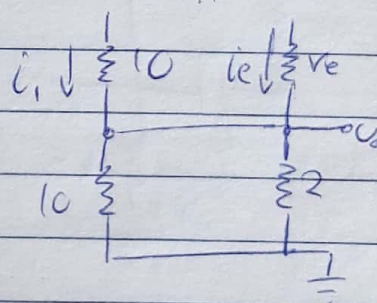 i₁ 10 ie re
10 2